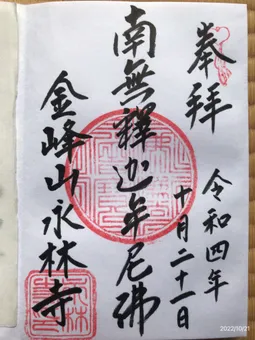 奉拝
令和四年
十月二十一日
南無釋迦牟尼佛
金峰山永林寺
2022/10/21